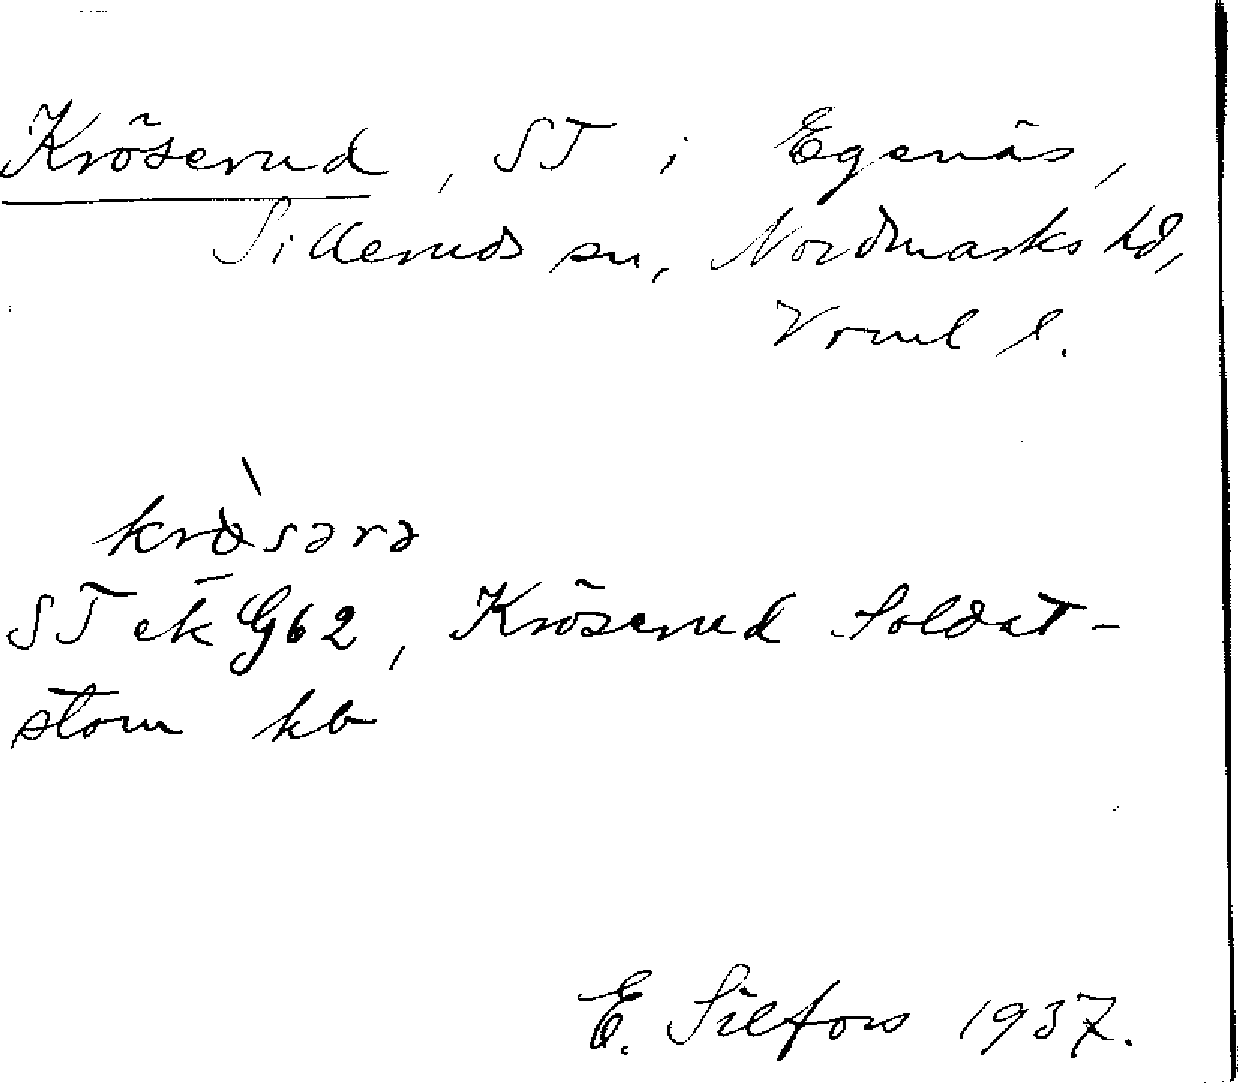 Kröserud, ST i Egenäs,
Silleruds sn, Nordmarks hd,
Vrml l.
krø̀sərə
ST ek G62, Kröserud Soldat-
stom kb
E. Silfors 1937.